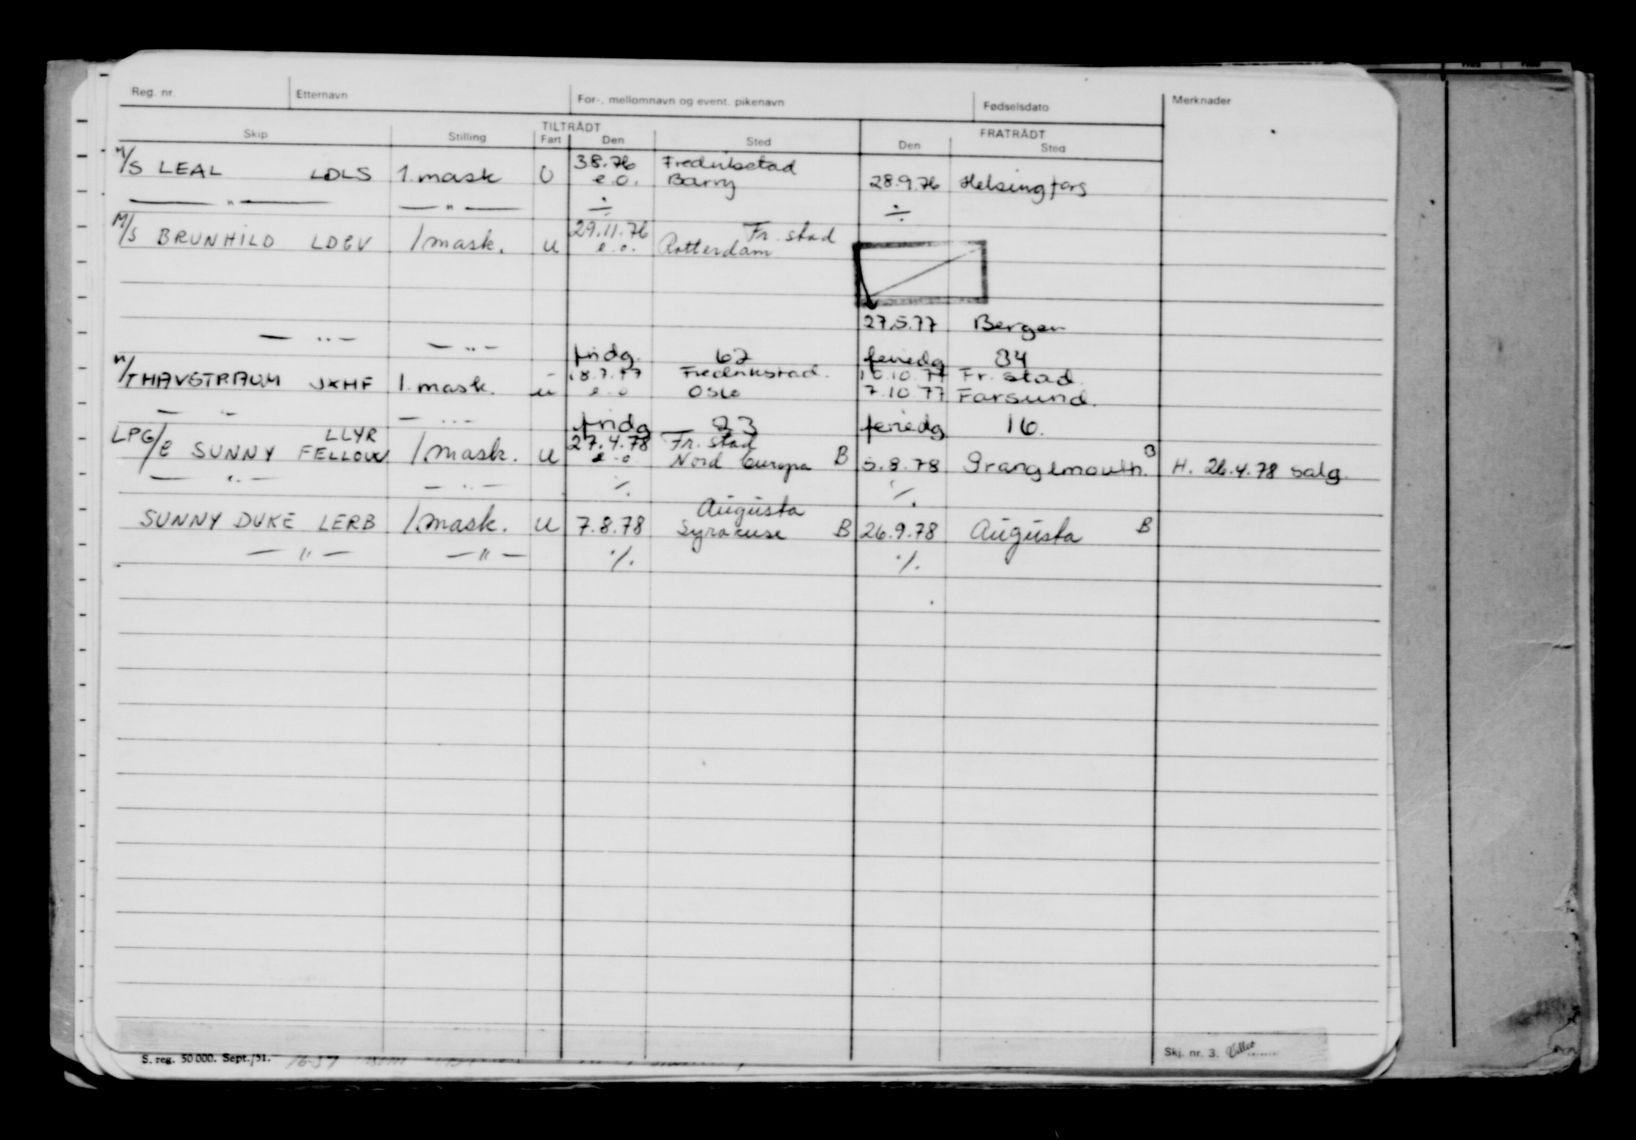 Reg. nr. Etternavn For-, mellomnavn og event. pikenavn Fødselsdato Merknader
TILTRÅDT FRATRÅDT
Skip Stilling Fart Den Sted Den Sted
M/S LEAL LDLS 1.mask U 3.8.76 Fredrikstad
e.o. Barry 28.9.76 Helsingfors
— " — — " — ÷ ÷
M/S BRUNHILD LDGV 1mask. u 29.11.76 Fr. stad
e.o. Rotterdam
27.5.77 Bergen
— " — — " — fridg. 62 feriedg 34
M/T HAVSTRAUM JXHF 1.mask. u 18.7.77 Fredrikstad. 10.10.77 Fr. stad.
e.o Oslo 7.10.77 Farsund.
— " — — " — fridg 23 feriedg 16.
LPG/E SUNNY FELLOW LLYR 1mask. u 27.4.78 Fr. stad
e.o. Nord Europa B 5.8.78 Grangemouth. B H. 26.4.78 salg.
— " — — " — ·/. ·/.
SUNNY DUKE LERB 1.mask. u 7.8.78 Augusta
Syracuse B 26.9.78 Augusta B
— " — — " — ·/. ·/.
S. reg. 50 000. Sept./51. Skj. nr. 3.